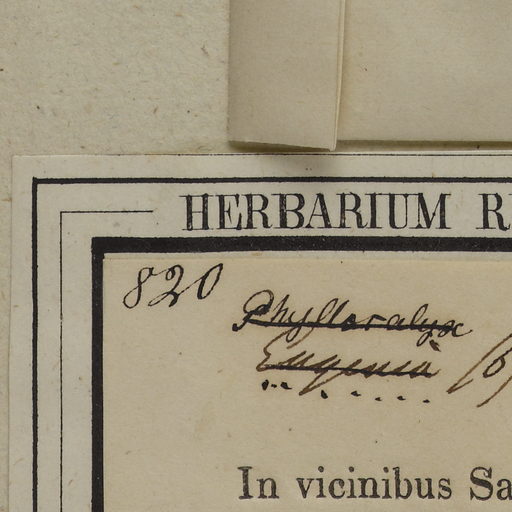 HERBARIUM R
820
Phyllocalyx
Eugenia (b
In vicinibus Sa